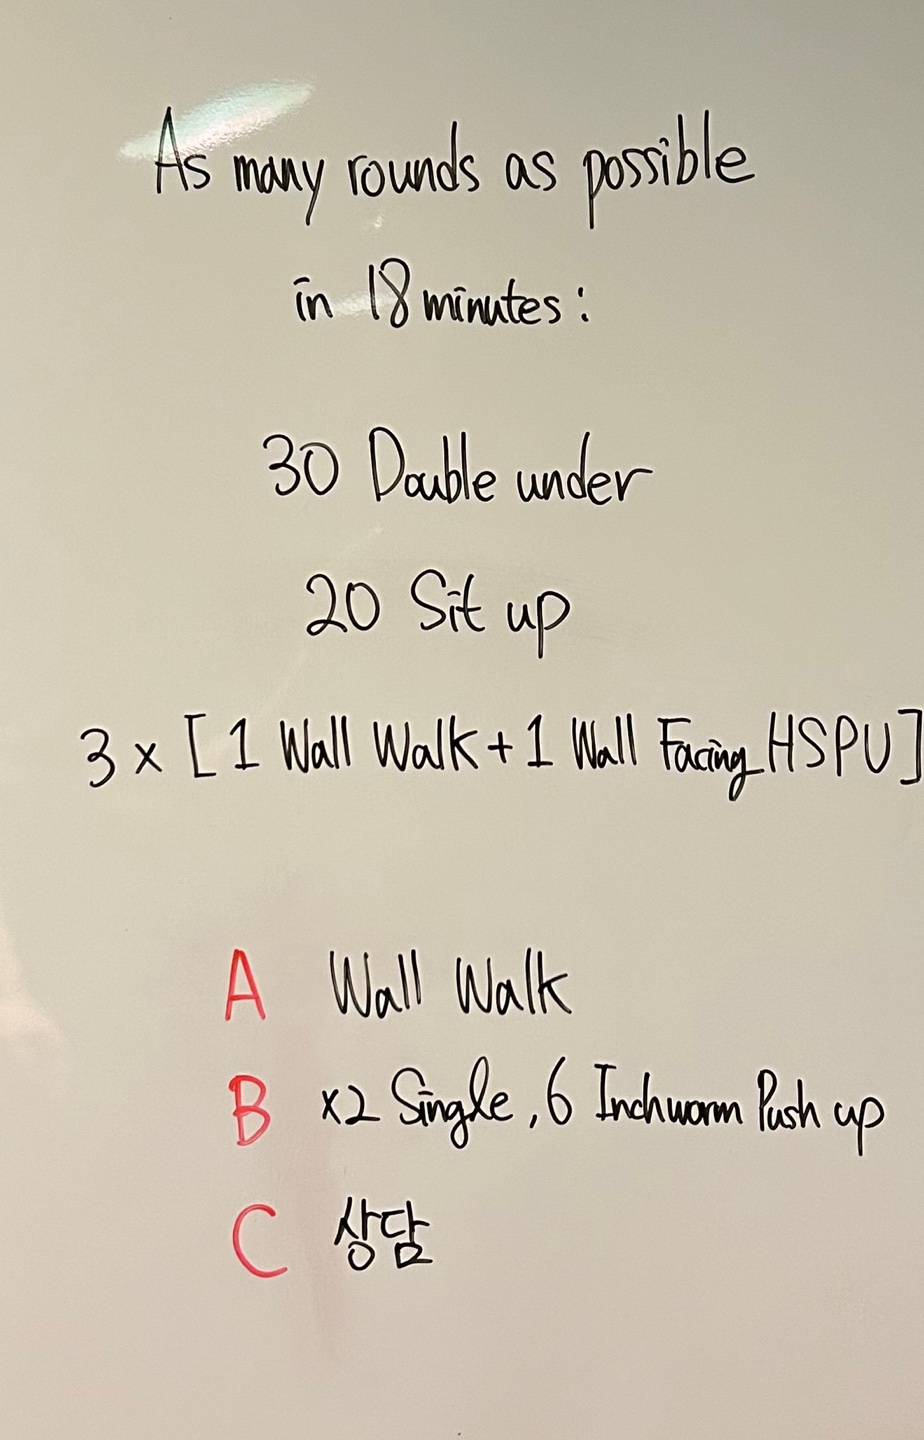 As many rounds as possible
in 18 minutes:
30 Double under
20 Sit up
3 x [1 Wall Walk + 1 Wall Facing HSPU]
A Wall Walk
B x2 Single, 6 Inchworm Push up
C 상담